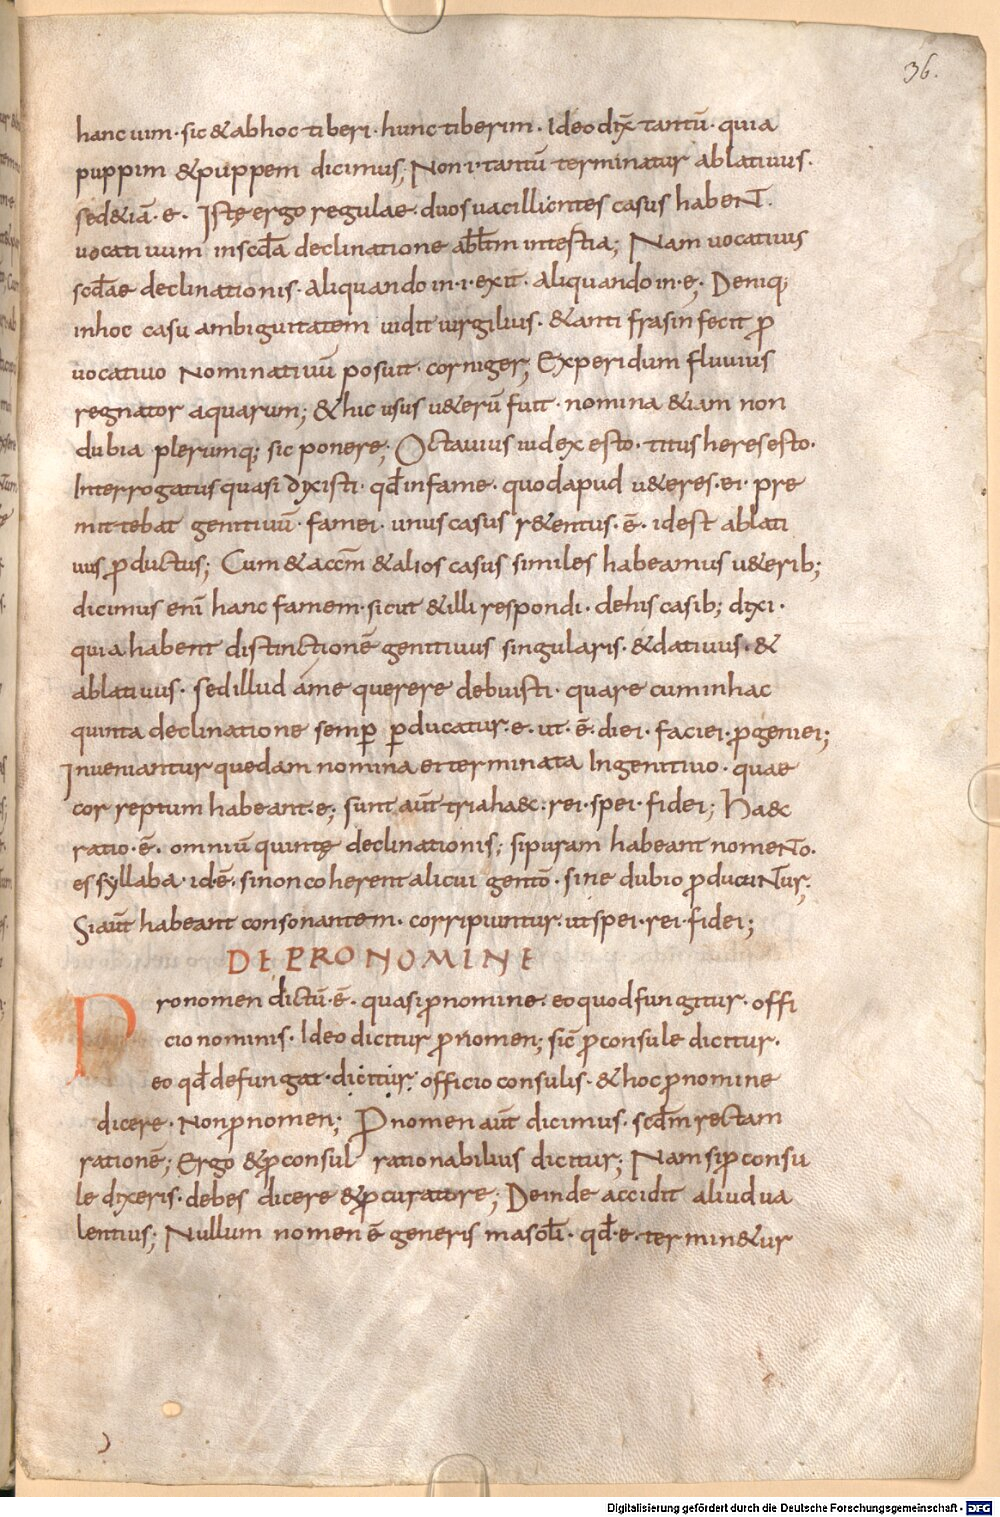 36.
hanc uim· sic & ab hoc tiberi· hunc tiberim· Ideo dix̄ tantū· quia
puppim & puppem dicimus; Non·i·tantū terminatur ablatiuus·
sed &iā· e· Istę ergo regulae· duos uacillantes casus habeNT·
uocatiuum in scd̄a declinatione abl̄tm in tertia; Nam uocatiuus
scd̄ae declinationis· aliquando in·i· exit· aliquando in·e; Deniq;
in hoc casu ambiguitatem uidit uirgilius· & antifrasin fecit p̄
uocatiuo Nominatiuū posuit· corniger; Experidum fluuius
regnator aquarum; & hic usus u&erū fuit· nomina &iam non
dubia plerumq; sic ponere; Octauius iudex esto· titus heres esto·
Interrogatus quasi dixisti· qd̄ in fame· quod apud u&eres·ei· pre
mittebat genitiuū· famei· unus casus r&entus·ē· id est ablati
uus p̄ductus; Cum & acc̄m & alios casus similes habeamus u&erib;
dicimus enī hanc famem· sicut & illi respondi· de his casib; dixi·
quia habent distinctionē genitiuus singularis· & datiuus· &
ablatiuus· sed illud á me querere debuisti· quare cum in hac
quinta declinatione semp̄ p̱ducatur·e· ut·ē· diei· faciei· p̄geniei;
Inueniantur quedam nomina ei terminata In genitiuo· quae
correptum habeant·e; sunt aūt tria haec· rei· spei· fidei; Haec
ratio·ē· omniū quintę declinationis; si puram habeant nomeNT·
es syllaba· id·ē· si non coherent alicui gentō· sine dubio p̄ducuNTur;
Si aūt habeant consonantem· corripiuntur· ut spei· rei· fidei;
DE PRONOMINE
Pronomen dictū·ē· quasi p̄ nomine· eo quod fungitur· offi
cio nominis· Ideo dicitur p̄nomen; sic̄ p̄consule dicitur·
eo qd̄ defungat· dicitur· officio consulis· & hoc p̄nomine
dicere· Non p̄nomen; P̄nomen aūt dicimus· scd̄m rectam
rationē; Ergo & p̄consul rationabilius dicitur; Nam si p̄consu
le dixeris· debes dicere & p̄curatore; Deinde accidit aliud ua
lentius; Nullum nomen ē generis mascl̄i· qd̄·e· termin&ur
Digitalisierung gefördert durch die Deutsche Forschungsgemeinschaft - DFG